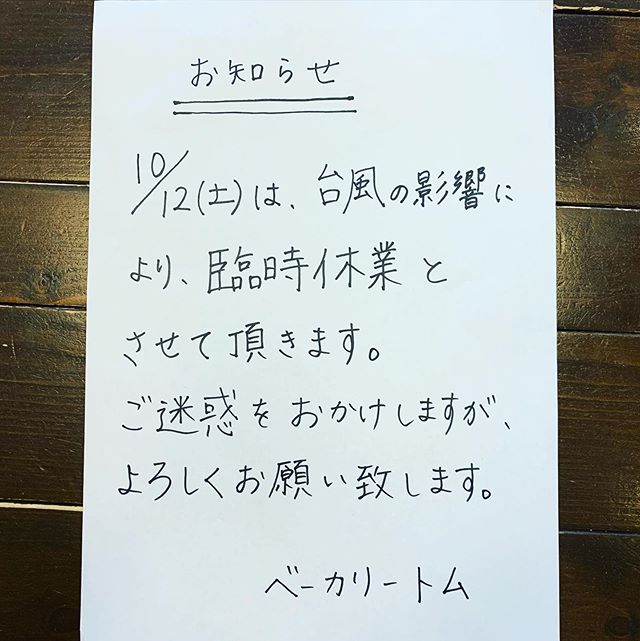 お知らせ
10/12(土)は、台風の影響に
より、臨時休業と
させて頂きます。
ご迷惑をおかけしますが、
よろしくお願い致します。
ベーカリートム